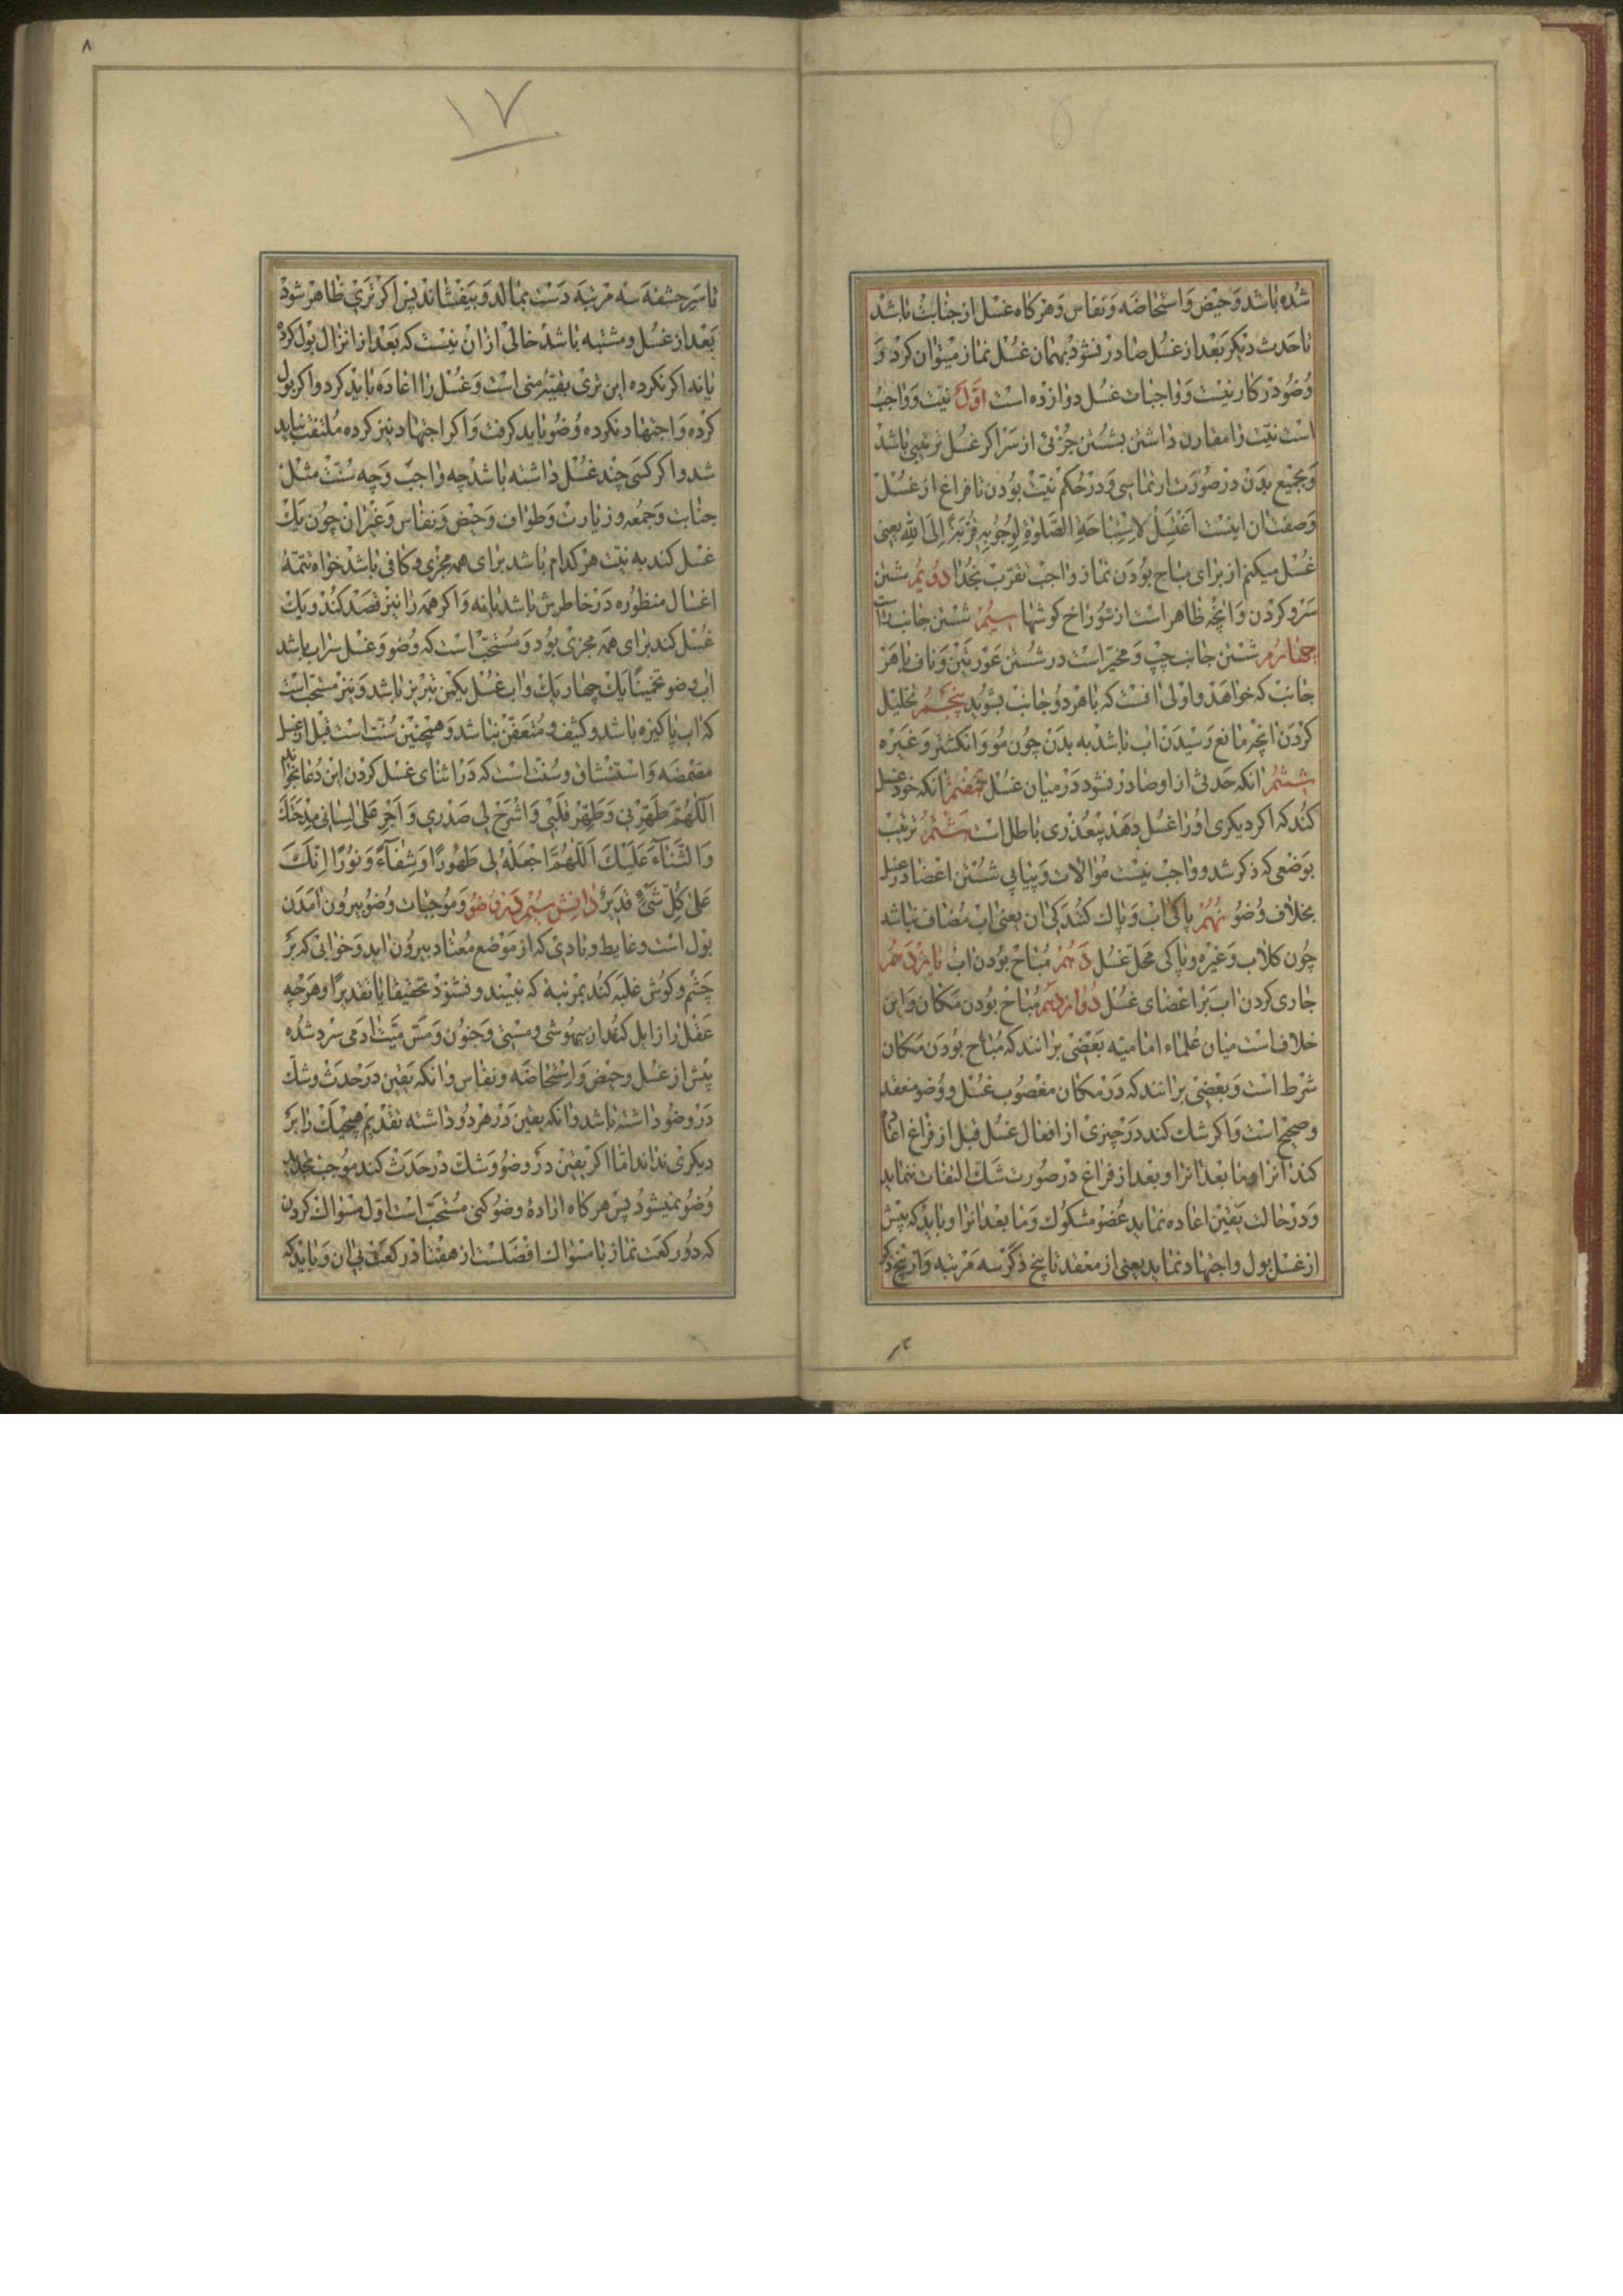 شده باشد و حیض و استحاضه و نفاس و هرکاه غسل از جنابت باشد
تا حدث دیکر بعد از غسل صادر نشود بهمان غسل نماز میتوان کرد و
وضو در کار نیست و واجبات غسل دوازده است اوّل نیّت و واجب
است نیّت را مقارن داشتن بشستن جزئی از سر اکر غسل ترتیبی باشد
و بجمیع بدن در صورت ارتماسی و در حکم نیّت بودن تا فراغ از غسل
وصفت ان اینست اَغْتَسِلُ لِاسْتِباحَةِ الصَّلوةِ لِوُجُوبِهِ قُرْبَةً اِلَی اللهِ یعنی
غسل میکنم از برای مباح بودن نماز واجب تقرّب بخدا دویّم شستن
سر و کردن و انچه ظاهر است از سوراخ کوشها سیّم شستن جانب راست
چهارم شستن جانب چپ و مخیّر است در شستن عورتین و ناف با هر
جانب که خواهد و اولی انست که با هر دو جانب بشوید پنجم تخلیل
کردن انچه مانع رسیدن اب باشد به بدن چون مو و انکشتر و غیره
ششم انکه حدثی از او صادر نشود در میان غسل هفتم انکه خود غسل
کند که اکر دیکری او را غسل دهد بیعذری باطل است هشتم ترتیب
بوضعی که ذکر شد و واجب نیست موالات و پیاپی شستن اعضا در غسل
بخلاف وضو نهم پاکی اب و پاک کنندکی ان یعنی اب مضاف نباشد
چون کلاب و غیره و پاکی محلّ غسل دهم مباح بودن اب یازدهم
جاری کردن اب بر اعضای غسل دوازدهم مباح بودن مکان و این
خلاف است میان علماء امامیّه بعضی برانند که مباح بودن مکان
شرط است و بعضی برانند که در مکان مغصوب غسل و وضو منعقد
و صحیح است و اکر شک کند در چیزی از افعال غسل قبل از فراغ اعاده
کند انرا و ما بعد انرا و بعد از فراغ در صورت شکّ التفات ننماید
و در حالت یقین اعاده نماید عضو مشکوک و ما بعد انرا و باید که پیش
از غسل بول و اجتهاد نماید یعنی از مقعد تا بیخ ذکر سه مرتبه و از بیخ ذکر
تا
٨
١٧
تا سر حشفه سه مرتبه دست بمالد و بیفشاند پس اکر تری ظاهر شود
بعد از غسل و مشتبه باشد خالی از ان نیست که بعد از انزال بول کرده
یا نه اکر نکرده این تری بقیّهٔ منی است و غسل را اعاده باید کرد و اکر بول
کرده و اجتهاد نکرده وضو باید کرفت و اکر اجتهاد نیز کرده ملتفت نباید
شد و اکر کسی چند غسل داشته باشد چه واجب و چه سنّت مثل
جنابت و جمعه و زیارت و طواف و حیض و نفاس و غیر ان چون یک
غسل کند به نیّت هر کدام باشد برای همه مجزی و کافی باشد خواه تتمّهٔ
اغسال منظوره در خاطرش باشد یا نه و اکر همه را نیز قصد کند و یک
غسل کند برای همه مجزی بود و مستحبّ است که وضو و غسل سراب باشد
اب وضو تخمیناً یک چهار یک و اب غسل یکمن تبریز باشد و نیز مستحبّ است
که اب پاکیزه باشد و کثیف و متعفّن نباشد و همچنین سنّت است قبل از غسل
مضمضه و استنشاق و سنّت است که در اثنای غسل کردن این دعا بخواند
اَللّٰهُمَّ طَهِّرْنِی وَ طَهِّرْ قَلْبِی وَ اشْرَحْ لِی صَدْرِی وَ اَجْرِ عَلیٰ لِسانِی مِدْحَتَکَ
وَ الثَّنآءَ عَلَیْکَ اَللّٰهُمَّ اجْعَلْهُ لِی طَهُورًا وَ شِفآءً وَ نُورًا اِنَّکَ
عَلیٰ کُلِّ شَیْءٍ قَدِیرٌ دانش سیّم در وضو و موجبات وضو بیرون امدن
بول است و غایط و بادی که از موضع معتاد بیرون اید و خوابی که بر
چشم و کوش غلبه کند بمرتبهٔ که نبیند و نشنود تحقیقا یا تقدیرا و هرچه
عقل را زایل کند از بیهوشی و مستی و جنون و مسّ میّت ادمی سرد شده
پیش از غسل و حیض و استحاضه و نفاس و انکه یقین در حدث و شکّ
در وضو داشته باشد و انکه یقین در هر دو داشته تقدیم هیچیک را بر
دیکری نداند امّا اکر یقین در وضو و شکّ در حدث کند موجب تجدید
وضو نمیشود پس هرکاه ارادهٔ وضو کنی مستحبّ است اوّل مسواک کردن
که دو رکعت نماز با مسواک افضلست از هفتاد رکعت بی ان و باید که